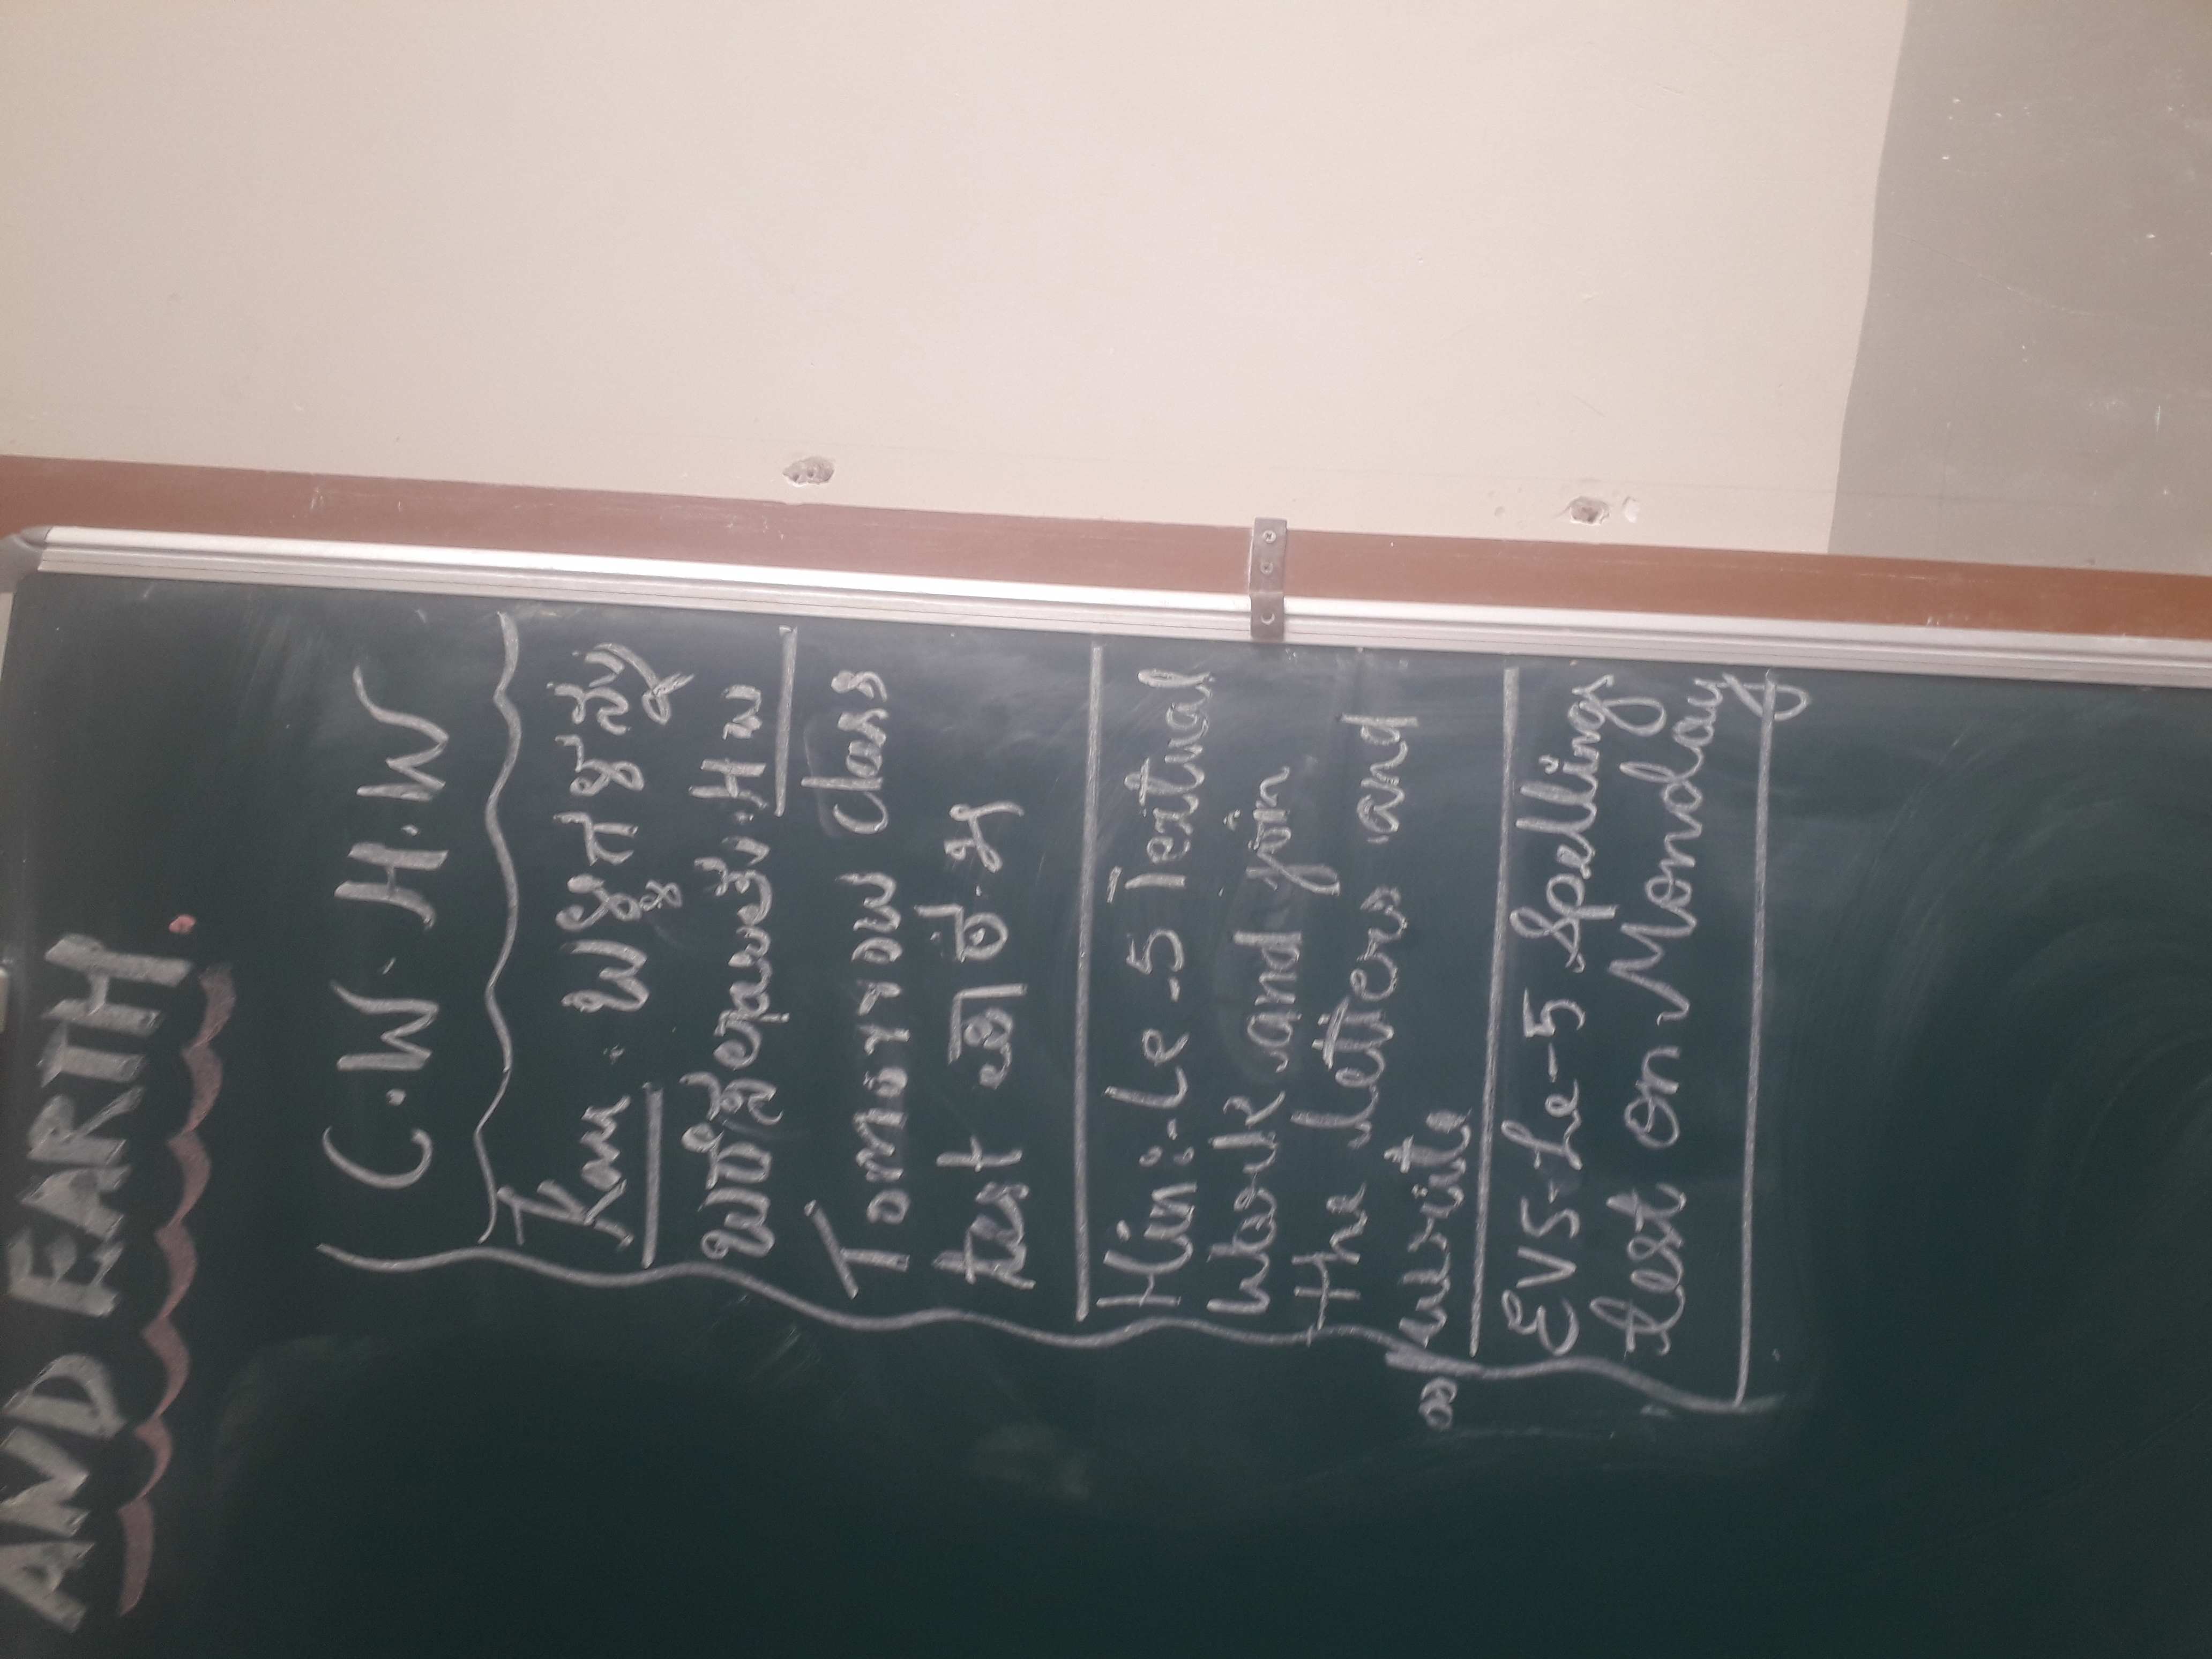 AND EARTH.
C.W. H.W
Kan: ಪುಸ್ತಕವನ್ನು
H W
Tomorrow class
test
Hin:- Le-5 Textual
work and join
the letters and
write
EVS-Le-5 Spellings
test on Monday